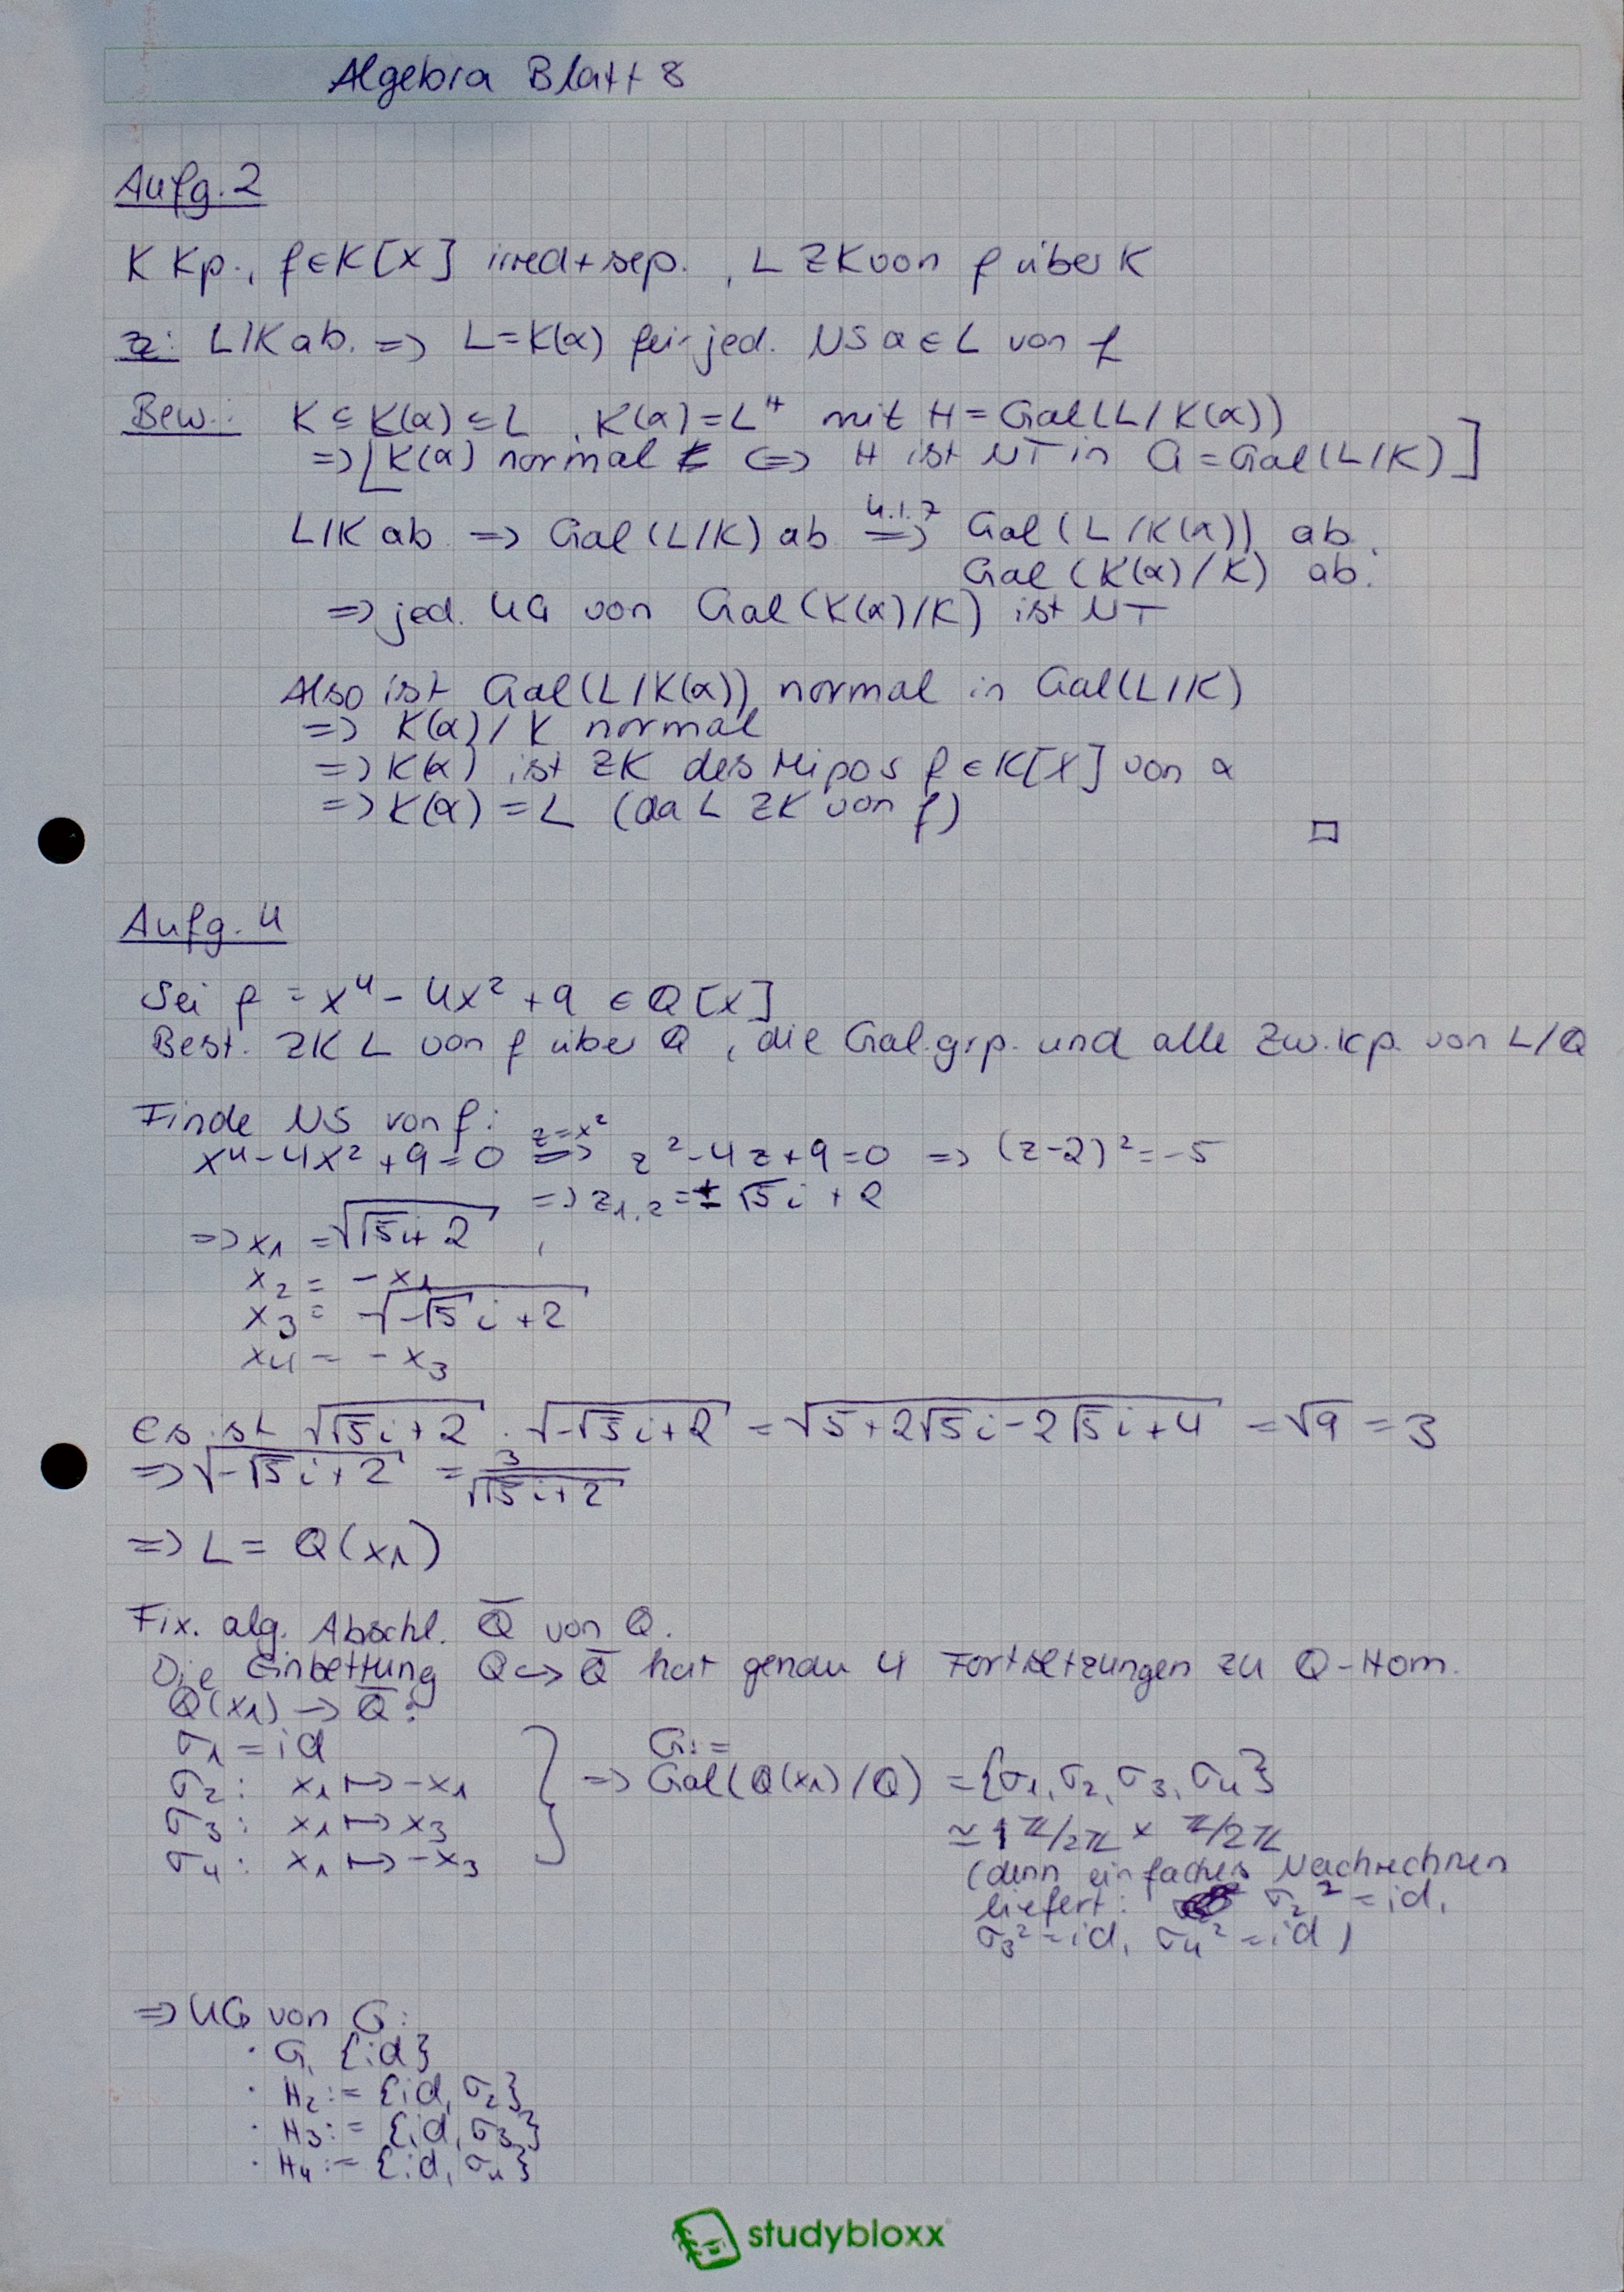 Algebra Blatt 8
Aufg. 2
K Kp., f∈K[X] irred+sep., L ZK von f über K
zz: L/K ab. => L=K(α) für jed. NS α∈L von f
Bew.: K⊆K(α)⊆L, K(α)=L^H mit H=Gal(L/K(α))
=> [K(α) normal <=> H ist NT in G=Gal(L/K)]
L/K ab. => Gal(L/K) ab =4.1.7=> Gal(L/K(α)) ab.
Gal(K(α)/K) ab.
=> jed. UG von Gal(K(α)/K) ist NT
Also ist Gal(L/K(α)) normal in Gal(L/K)
=> K(α)/K normal
=> K(α) ist ZK des Mipos f∈K[X] von α
=> K(α)=L (da L ZK von f)
□
Aufg. 4
Sei f = x⁴-4x²+9 ∈ ℚ[X]
Best. ZK L von f über ℚ, die Gal.grp. und alle Zw.kp. von L/ℚ
Finde NS von f:
x⁴-4x²+9=0 =z=x²=> z²-4z+9=0 => (z-2)²=-5
=> z₁,₂=±√5i+2
=> x₁ = √(√5i+2),
x₂ = -x₁
x₃ = -√(-√5i+2)
x₄ = -x₃
Es ist √(√5i+2) · √(-√5i+2) = √(5+2√5i-2√5i+4) = √9 = 3
=> √(-√5i+2) = 3/√(√5i+2)
=> L = ℚ(x₁)
Fix. alg. Abschl. ℚ̅ von ℚ.
Die Einbettung ℚ↪ℚ̅ hat genau 4 Fortsetzungen zu ℚ-Hom.
ℚ(x₁) → ℚ̅:
σ₁ = id
σ₂: x₁ ↦ -x₁
σ₃: x₁ ↦ x₃
σ₄: x₁ ↦ -x₃
G:=
=> Gal(ℚ(x₁)/ℚ) = {σ₁, σ₂, σ₃, σ₄}
≃ ℤ/2ℤ × ℤ/2ℤ
(denn einfaches Nachrechnen
liefert: σ₂² = id,
σ₃² = id, σ₄² = id)
=> UG von G:
· G, {id}
· H₂ := {id, σ₂}
· H₃ := {id, σ₃}
· H₄ := {id, σ₄}
studybloxx